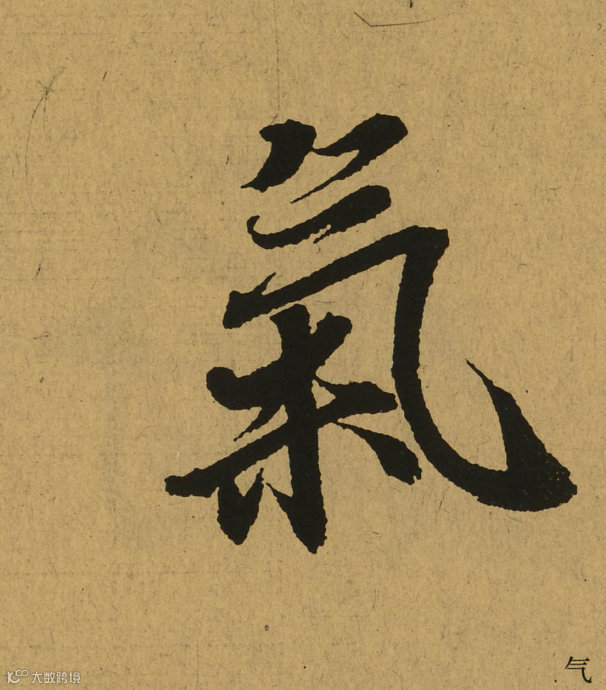 氣
气
大数跨境